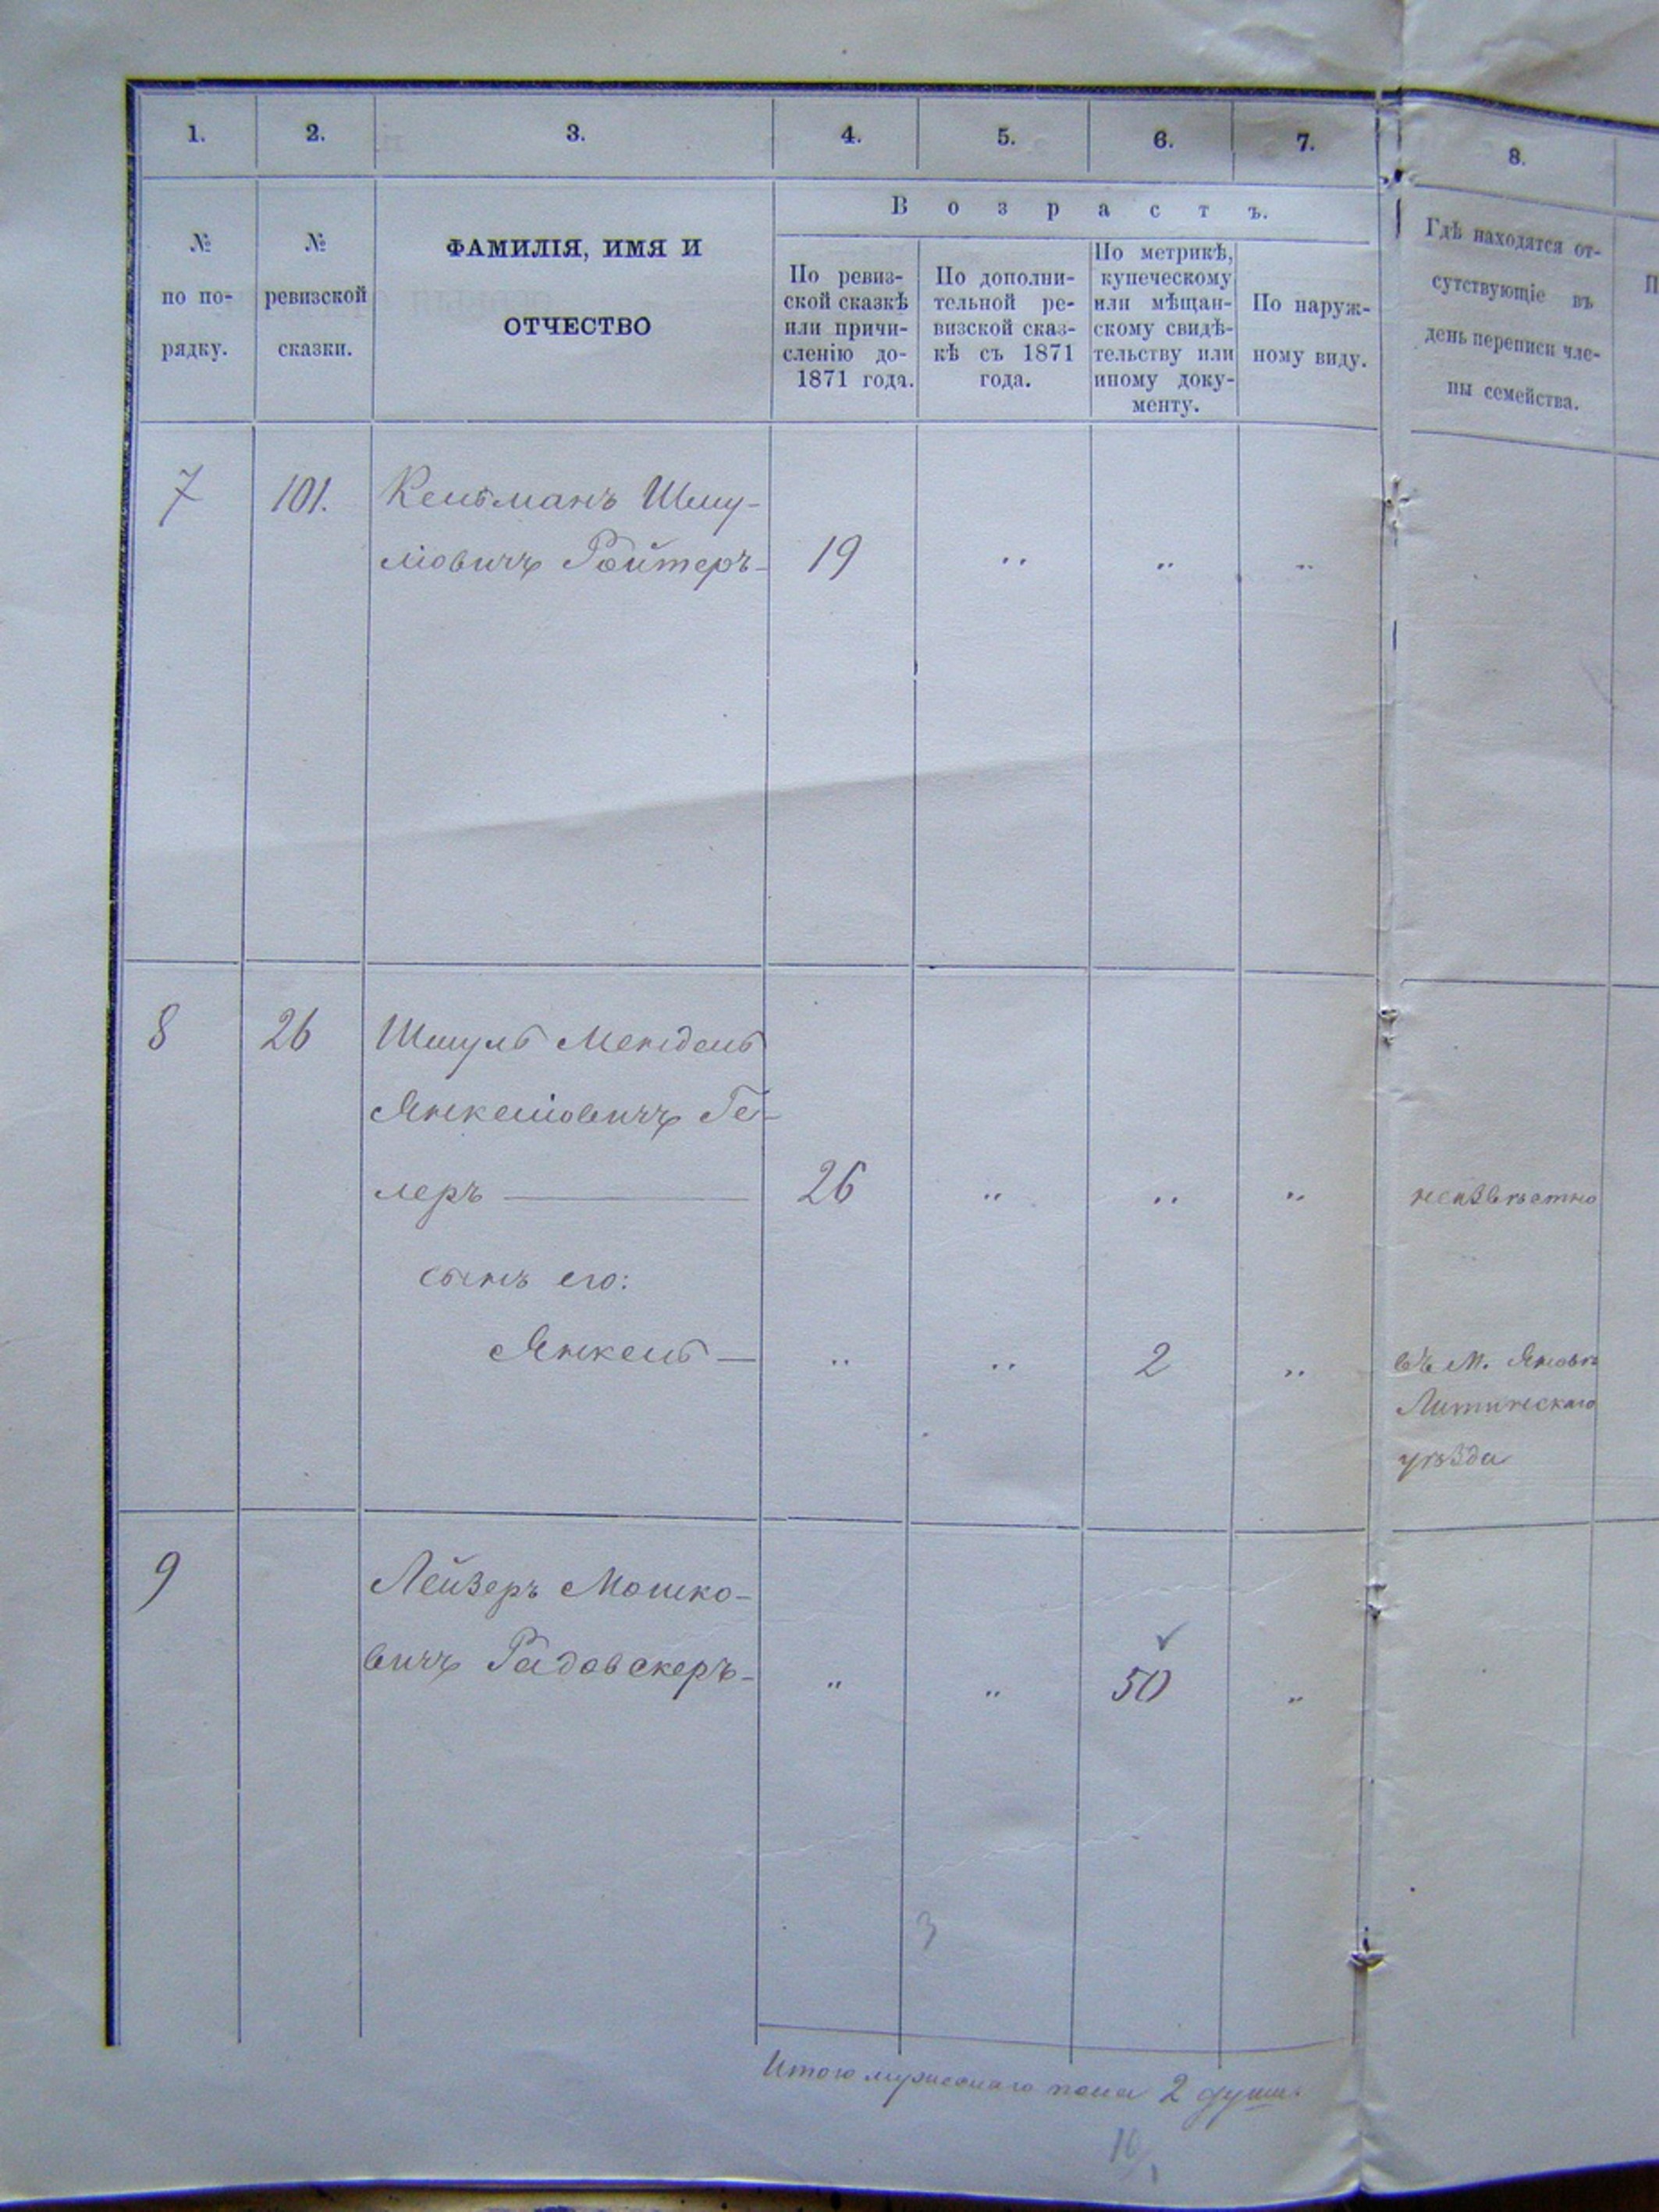 1. 2. 3. 4. 5. 6. 7. 8.
№
по по-
рядку.
№
ревизской
сказки.
ФАМИЛІЯ, ИМЯ И
ОТЧЕСТВО
В о з р а с т ъ.
По ревиз-
ской сказкѣ
или причи-
сленію до-
1871 года.
По дополни-
тельной ре-
визской сказ-
кѣ съ 1871
года.
По метрикѣ,
купеческому
или мѣщан-
скому свидѣ-
тельству или
иному доку-
менту.
По наруж-
ному виду.
Гдѣ находятся от-
сутствующіе въ
день переписи чле-
ны семейства.
7 101. Кельманъ Шму-
ліовичъ Ройтеръ- 19 " " "
8 26 Шмуль Мендель
Янкеліовичъ Ге-
леръ — 26 " " " неизвѣстно
сынъ его:
Янкель — " " 2 " въ М. Яновѣ
Литинскаго
уѣзда
9 Лейзеръ Мошко-
вичъ Радовскеръ- " " 50 "
3
Итого мужескаго пола 2 души